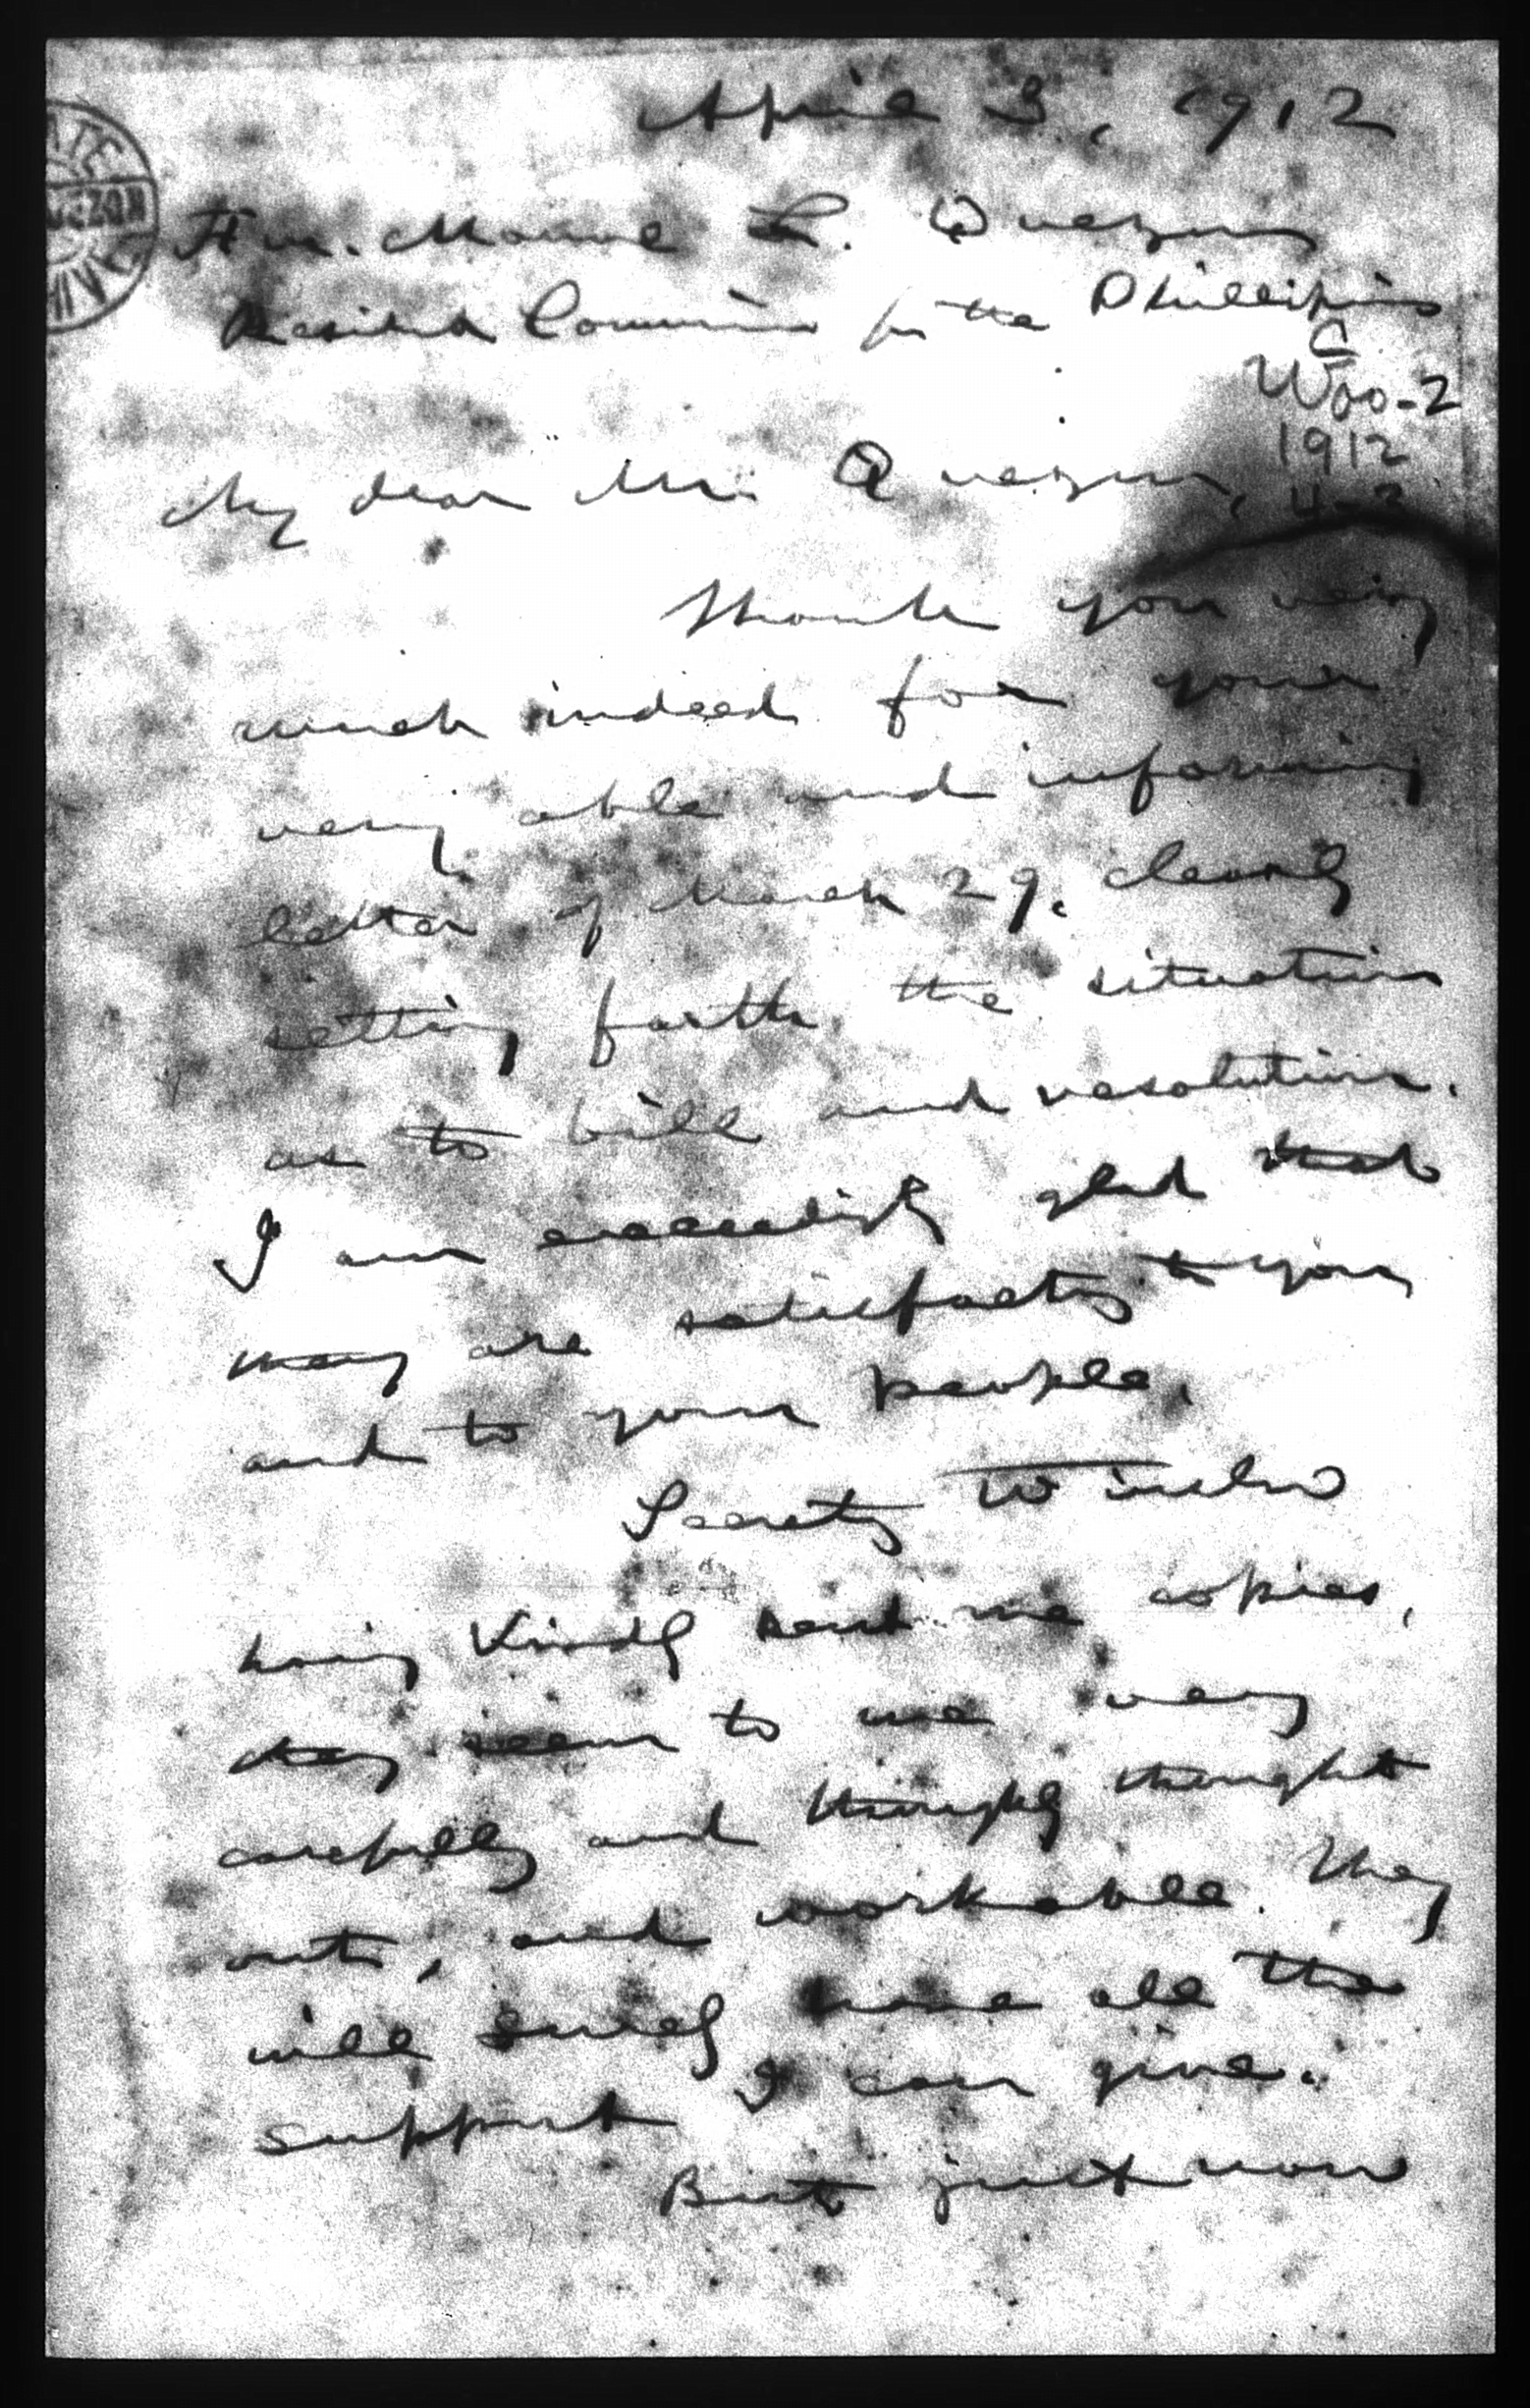 April 3, 1912
Hon. Manuel L. Quezon
Resident Commissioner for the Phillipines
G
Woo-2
1912
4-3
My dear Mr. Quezon,
Thank you very
much indeed for your
very able and informing
letter of March 29. clearly
setting forth the situation
as to bill and resolution.
I am exceedingly glad that
they are satisfactory to you
and to your people.
Secretary Winslow
having kindly sent me copies,
they seem to me very
carefully and thoroughly thought
out, and workable. They
will surely have all the
support I can give.
But just now